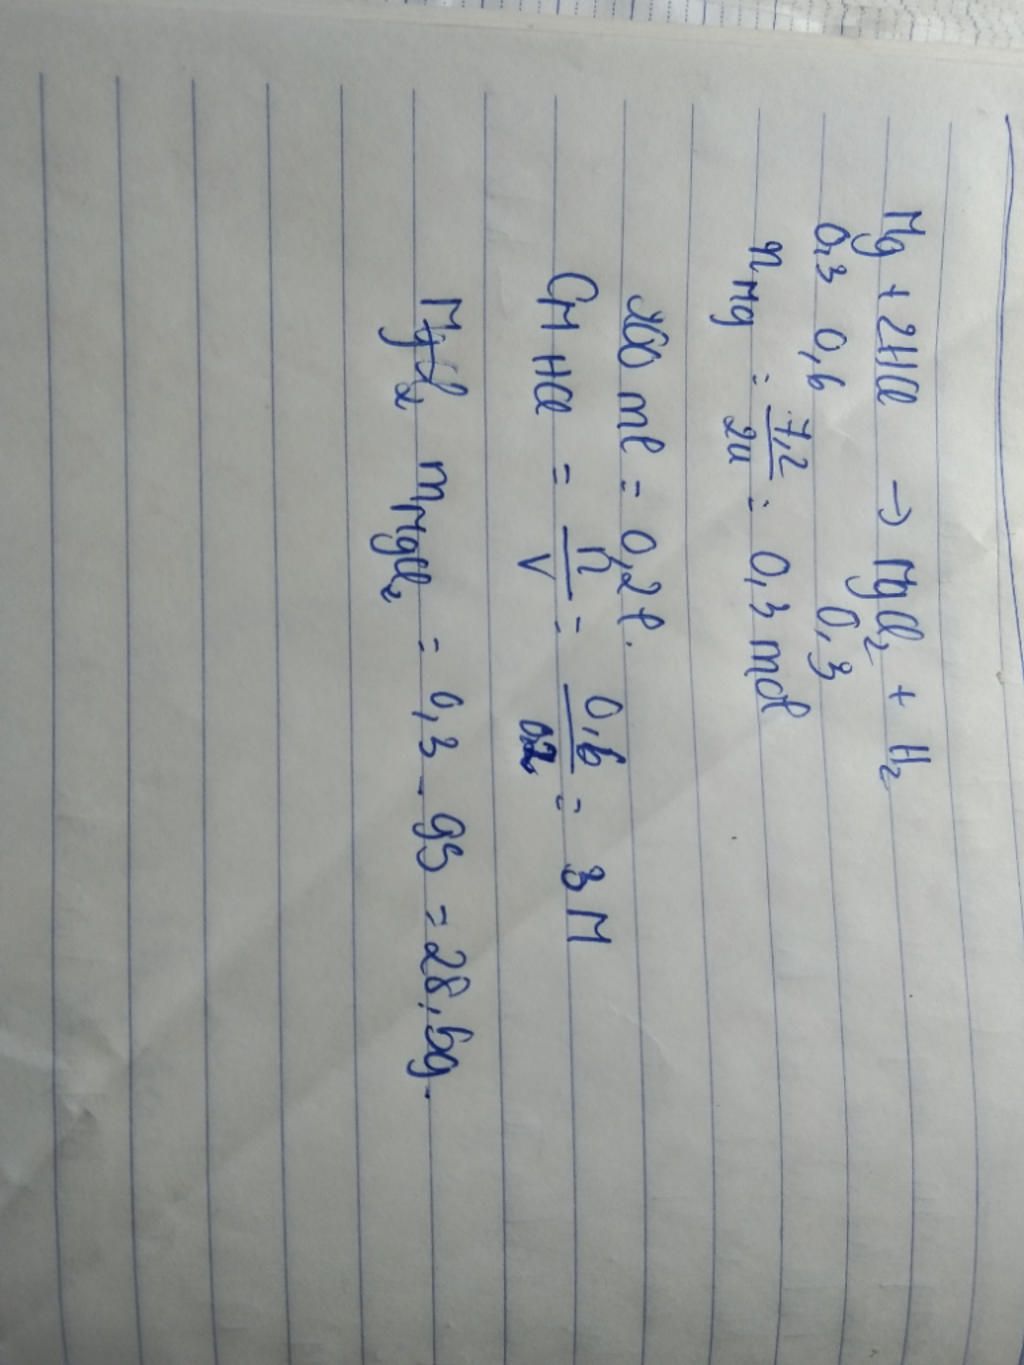 Mg + 2HCl → MgCl₂ + H₂
0,3 0,6 0,3
nMg = 7,2/24 = 0,3 mol
200 ml = 0,2 l.
CM HCl = n/V = 0,6/0,2 = 3 M
MgCl₂ mMgCl₂ = 0,3 . 95 = 28,5g.